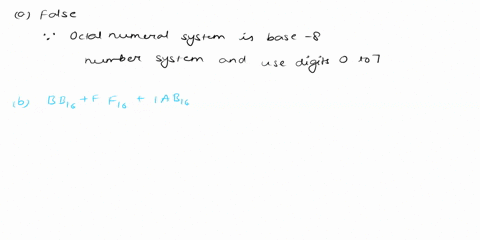 (a) False
∵ Octal numeral system is base -8
number system and use digits 0 to 7
(b) BB₁₆ + F F₁₆ + 1AB₁₆